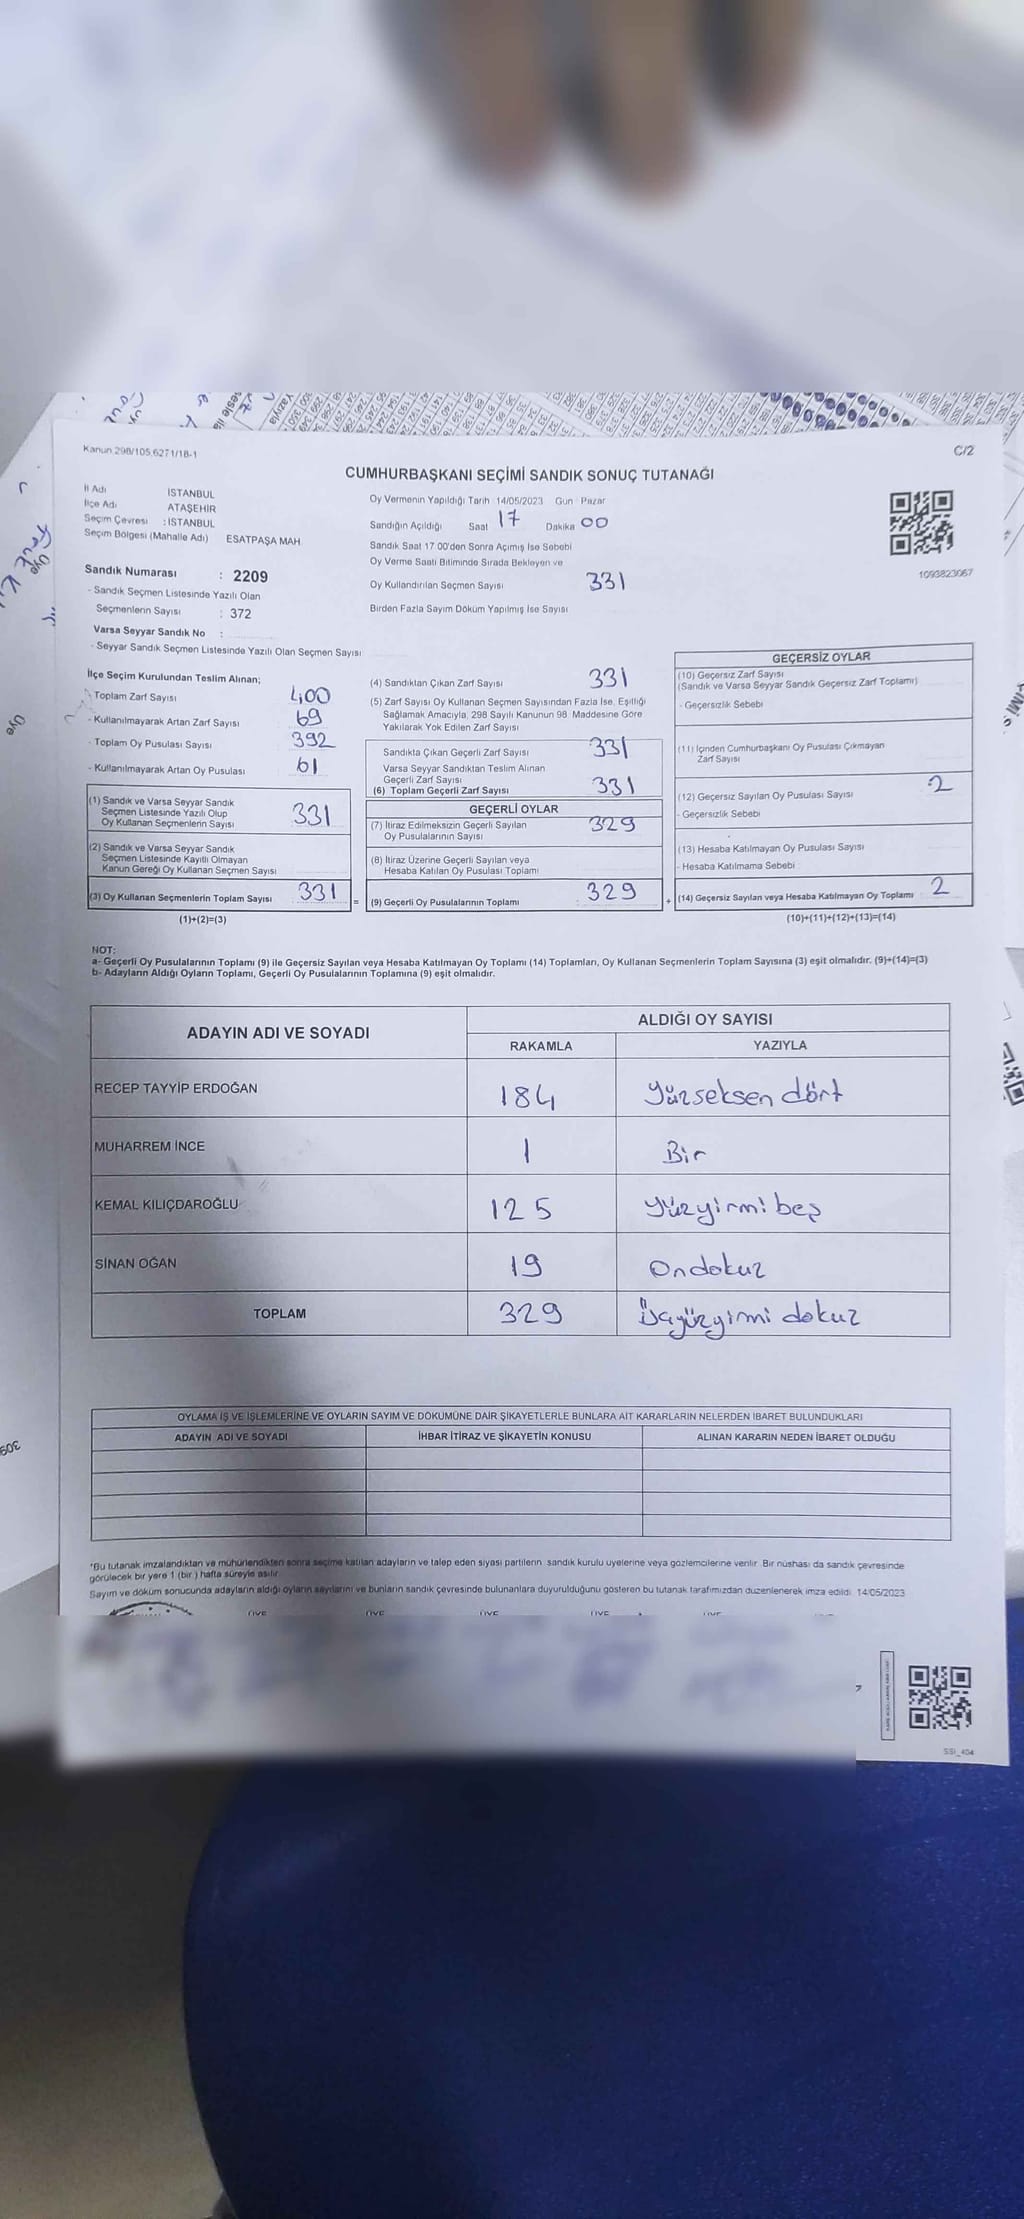 Kanun 298/105,6271/18-1
C/2
CUMHURBAŞKANI SEÇİMİ SANDIK SONUÇ TUTANAĞI
İl Adı İSTANBUL
İlçe Adı ATAŞEHİR
Seçim Çevresi : İSTANBUL
Seçim Bölgesi (Mahalle Adı) ESATPAŞA MAH.
Oy Vermenin Yapıldığı Tarih 14/05/2023 Gün Pazar
Sandığın Açıldığı Saat 17 Dakika 00
Sandık Saat 17 00'den Sonra Açımış İse Sebebi
Oy Verme Saati Bitiminde Sırada Bekleyen ve
Oy Kullandırılan Seçmen Sayısı 331
Birden Fazla Sayım Döküm Yapılmış İse Sayısı
1093823067
Sandık Numarası : 2209
- Sandık Seçmen Listesinde Yazılı Olan
Seçmenlerin Sayısı : 372
Varsa Seyyar Sandık No :
- Seyyar Sandık Seçmen Listesinde Yazılı Olan Seçmen Sayısı
İlçe Seçim Kurulundan Teslim Alınan;
- Toplam Zarf Sayısı 400
- Kullanılmayarak Artan Zarf Sayısı 69
- Toplam Oy Pusulası Sayısı 392
- Kullanılmayarak Artan Oy Pusulası 61
(1) Sandık ve Varsa Seyyar Sandık
Seçmen Listesinde Yazılı Olup
Oy Kullanan Seçmenlerin Sayısı 331
(2) Sandık ve Varsa Seyyar Sandık
Seçmen Listesinde Kayıtlı Olmayan
Kanun Gereği Oy Kullanan Seçmen Sayısı
(3) Oy Kullanan Seçmenlerin Toplam Sayısı 331 =
(1)+(2)=(3)
(4) Sandıktan Çıkan Zarf Sayısı 331
(5) Zarf Sayısı Oy Kullanan Seçmen Sayısından Fazla İse, Eşitliği
Sağlamak Amacıyla, 298 Sayılı Kanunun 98 Maddesine Göre
Yakılarak Yok Edilen Zarf Sayısı
Sandıkta Çıkan Geçerli Zarf Sayısı 331
Varsa Seyyar Sandıktan Teslim Alınan
Geçerli Zarf Sayısı
(6) Toplam Geçerli Zarf Sayısı 331
GEÇERLİ OYLAR
(7) İtiraz Edilmeksizin Geçerli Sayılan
Oy Pusulalarının Sayısı 329
(8) İtiraz Üzerine Geçerli Sayılan veya
Hesaba Katılan Oy Pusulası Toplamı
(9) Geçerli Oy Pusulalarının Toplamı : 329 +
GEÇERSİZ OYLAR
(10) Geçersiz Zarf Sayısı
(Sandık ve Varsa Seyyar Sandık Geçersiz Zarf Toplamı)
- Geçersizlik Sebebi
(11) İçinden Cumhurbaşkanı Oy Pusulası Çıkmayan
Zarf Sayısı
(12) Geçersiz Sayılan Oy Pusulası Sayısı 2
- Geçersizlik Sebebi
(13) Hesaba Katılmayan Oy Pusulası Sayısı
- Hesaba Katılmama Sebebi
(14) Geçersiz Sayılan veya Hesaba Katılmayan Oy Toplamı 2
(10)+(11)+(12)+(13)=(14)
NOT:
a- Geçerli Oy Pusulalarının Toplamı (9) ile Geçersiz Sayılan veya Hesaba Katılmayan Oy Toplamı (14) Toplamları, Oy Kullanan Seçmenlerin Toplam Sayısına (3) eşit olmalıdır. (9)+(14)=(3)
b- Adayların Aldığı Oyların Toplamı, Geçerli Oy Pusulalarının Toplamına (9) eşit olmalıdır.
ADAYIN ADI VE SOYADI
ALDIĞI OY SAYISI
RAKAMLA YAZIYLA
RECEP TAYYİP ERDOĞAN 184 Yüzseksen dört
MUHARREM İNCE 1 Bir
KEMAL KILIÇDAROĞLU 125 Yüzyirmi beş
SİNAN OĞAN 19 Ondokuz
TOPLAM 329 Üçyüzyirmi dokuz
OYLAMA İŞ VE İŞLEMLERİNE VE OYLARIN SAYIM VE DÖKÜMÜNE DAİR ŞİKAYETLERLE BUNLARA AİT KARARLARIN NELERDEN İBARET BULUNDUKLARI
ADAYIN ADI VE SOYADI İHBAR İTİRAZ VE ŞİKAYETİN KONUSU ALINAN KARARIN NEDEN İBARET OLDUĞU
*Bu tutanak imzalandıktan ve mühürlendikten sonra seçime katılan adayların ve talep eden siyasi partilerin sandık kurulu üyelerine veya gözlemcilerine verilir Bir nüshası da sandık çevresinde
görülecek bir yere 1 (bir ) hafta süreyle asılır
Sayım ve döküm sonucunda adayların aldığı oyların sayılarını ve bunların sandık çevresinde bulunanlara duyurulduğunu gösteren bu tutanak tarafımızdan düzenlenerek imza edildi 14/05/2023
ÜYE ÜYE ÜYE ÜYE ÜYE
SSI_404